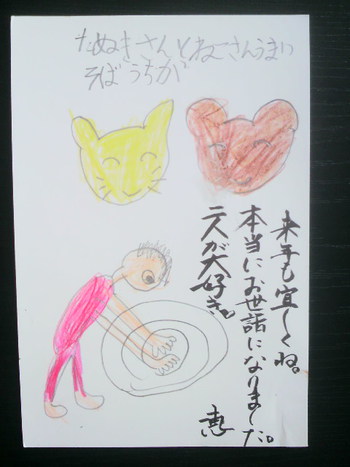 たぬきさんとねこさんうまい
そばうちが
来年も宜しくね。
本当にお世話になりました。
二人が大好き。
恵